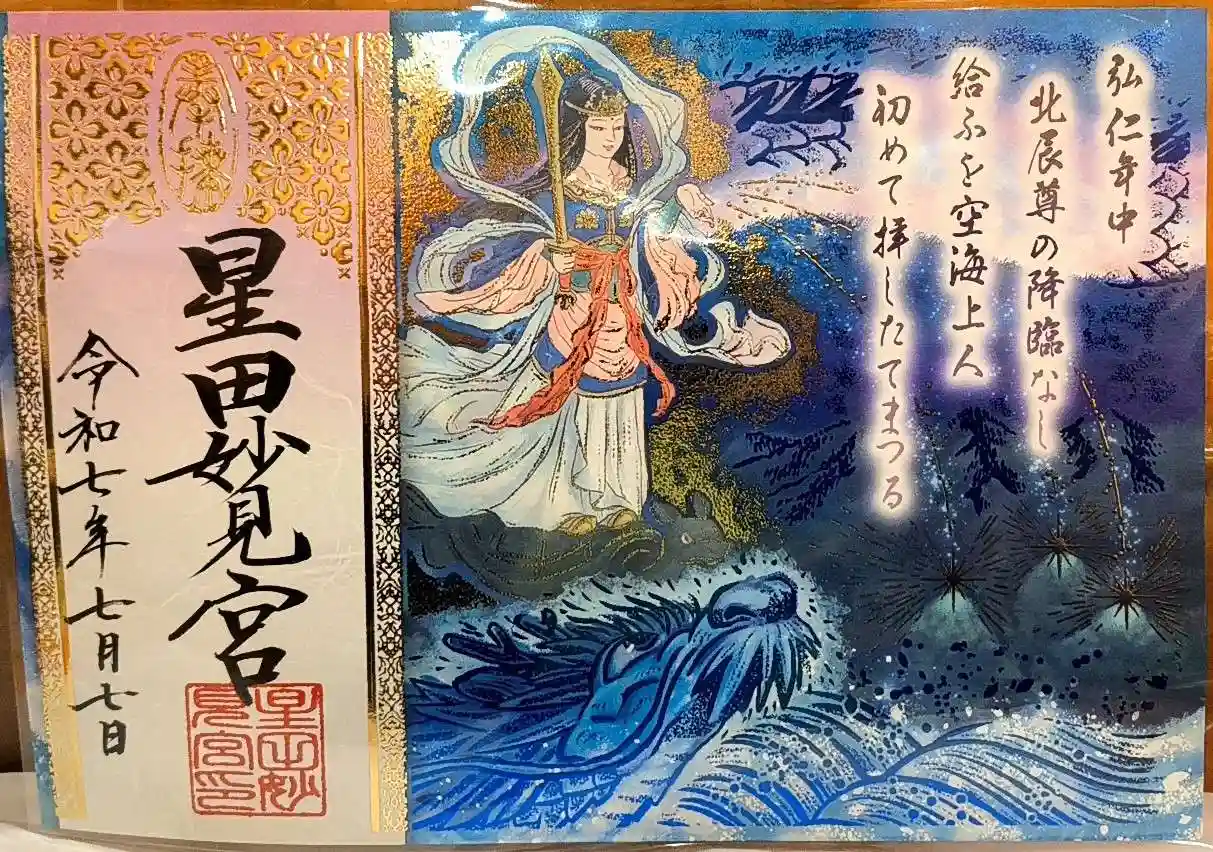 弘仁年中
北辰尊の降臨なし
給ふを空海上人
初めて拝したてまつる
奉拝
星田妙見宮
令和七年七月七日
星田妙
見宮印